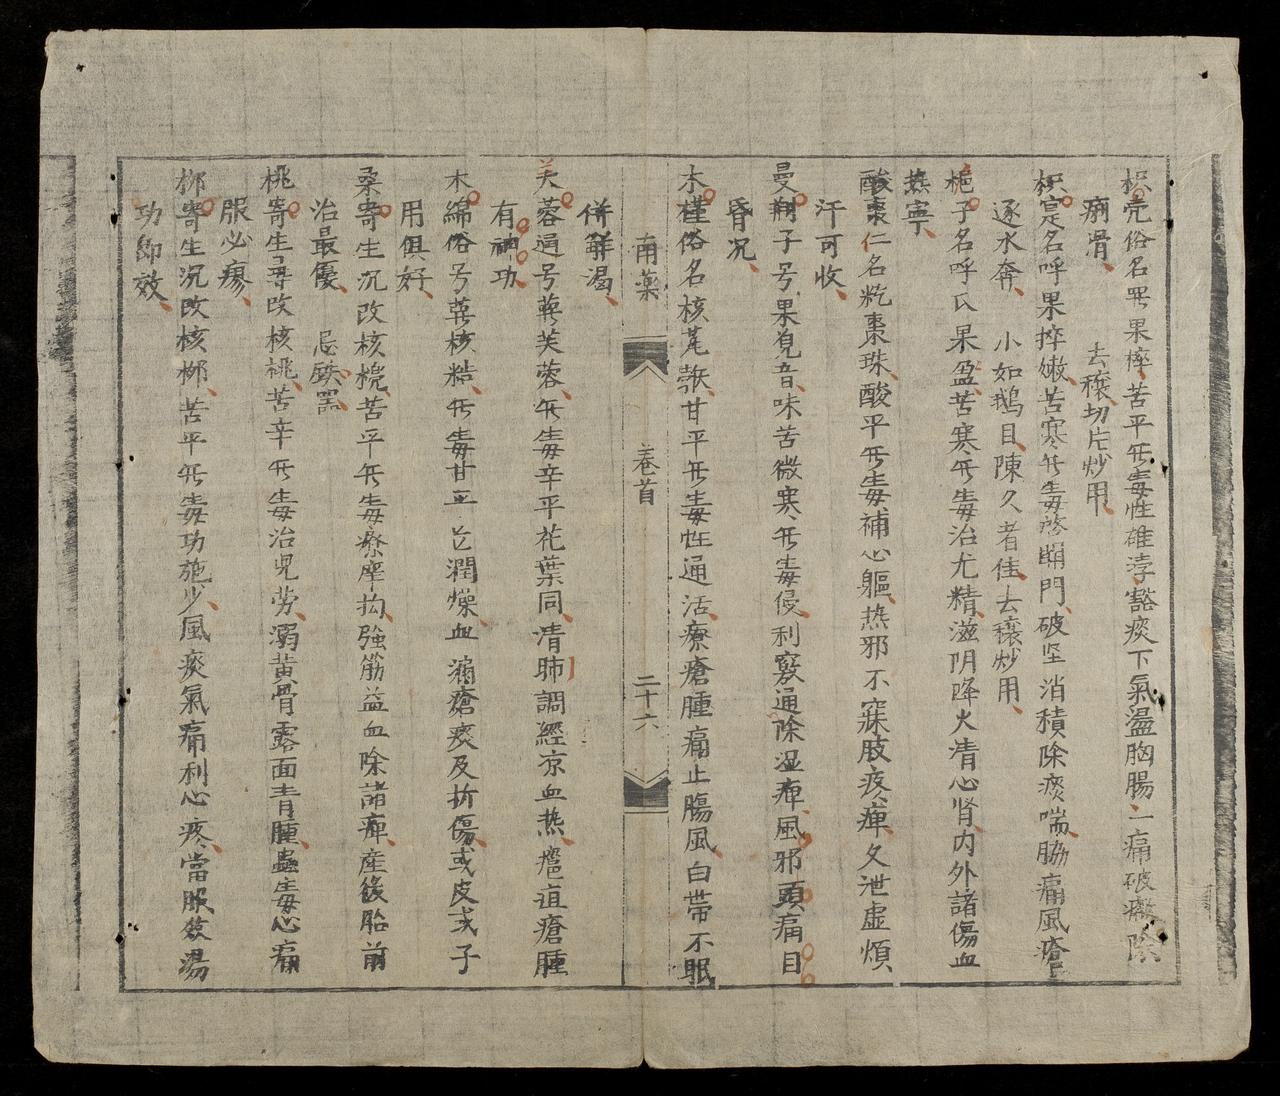 枳壳俗名𦊛果椊苦平旡毒性雄浡豁痰下氣溫胸腸一痛破癥除
痢滑 去穣切片炒用
枳寔名呼果椊嫩苦寒旡毒啓崩門破坚消積除痰喘脇痛風瘡
逐水奔 小如鵝目陳久者佳去穣炒用
栀子名呼瓜果盈苦寒旡毒治尤精滋阴降火清心肾内外諸傷血
熱寧
酸棗仁名籺棗珠酸平旡毒補心軀熱邪不寐肢疼痺久泄虚煩
汗可收
曼荆子号果覓音味苦微寒旡毒侵利竅通除湿痺風邪頭痛目
昏况
木槿俗名核花𣖖甘平旡毒性通活療瘡腫痛止腸風白带不眠
併解渴
南藥 卷首 二十六
芙蓉逥号𦬑芙蓉旡毒辛平花葉同清肺調經凉血热癰疽瘡腫
有神功
木綿俗号𦬑核粘旡毒甘平亡潤燥血漏瘡痰及折傷或皮或子
用俱好
桑寄生沉改核槐苦平旡毒療摩拘强筋益血除諸痺産後胎前
治最優 忌鉄噐
桃寄生尋改核桃苦辛旡毒治児劳溺黄骨露面青腫蠱毒心痛
服必瘳
柳寄生沉改核柳苦平旡毒功施少風痰氣痛利心疼當服煲湯
功即效